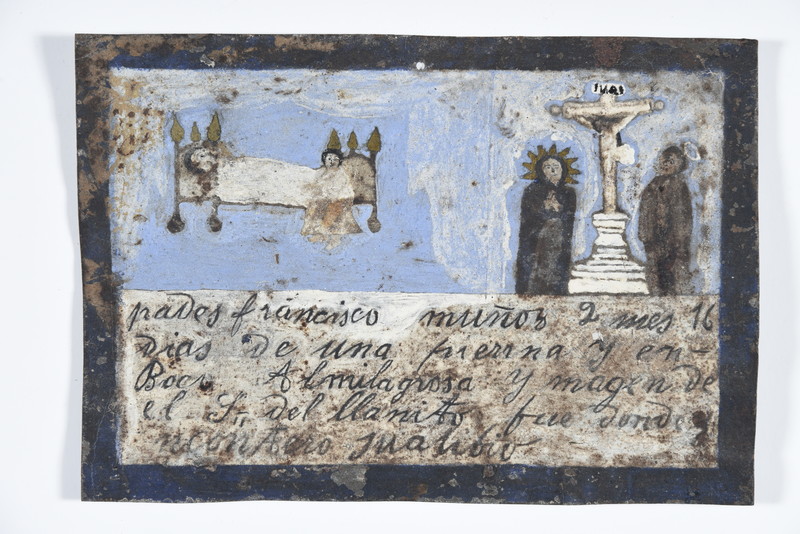 INRI
pades francisco muños 2 mes 16
dias de una pierrna y en-
Boco Al milagrosa y magen de
el S.r del llanito fue donde
encontaro su alivio